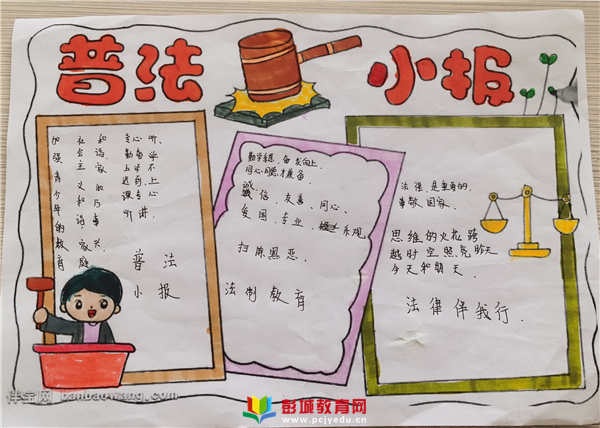 普法
小报
加强青少年的教育
社会主义和谐家庭
和谐家的
事
兴
专心听、
勤奋学
上学不
迟到,上
课专心
听讲.
普法
小报
奋发向上.
同心同德才
诚信、友善、同心、
爱国、专业、
乐观
扫除黑恶.
法制教育
法律是重要的,
尊敬国家.
思维的火花跨
越时空照亮昨天
今天和明天.
法律伴我行.
伴宝网 banbaowang.com
彭城教育网
www.pcjyedu.cn